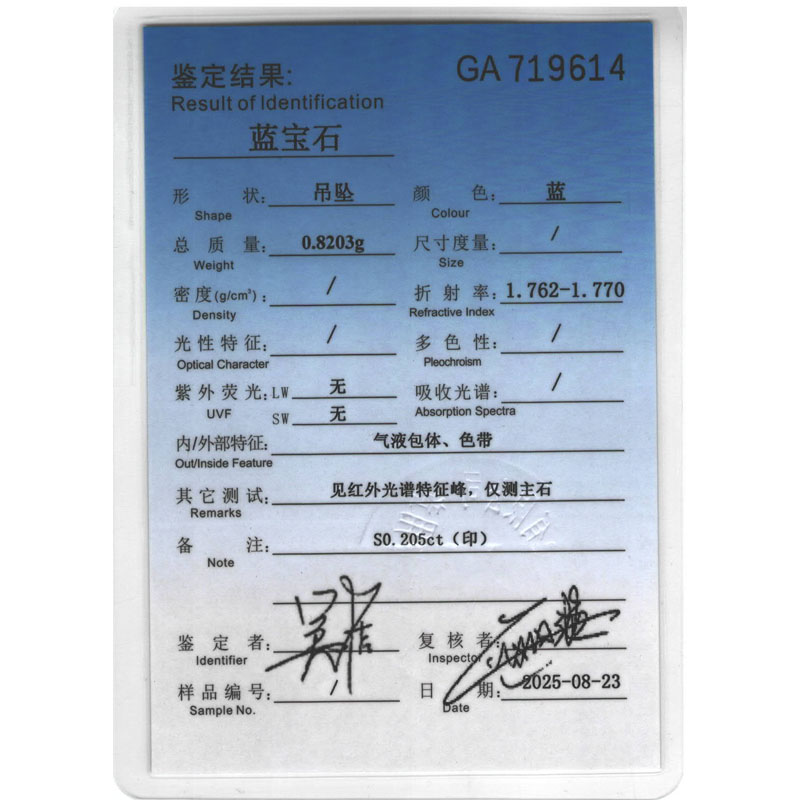 鉴定结果: GA 719614
Result of Identification
蓝宝石
形状: 吊坠 颜色: 蓝
Shape Colour
总质量: 0.8203g 尺寸度量: /
Weight Size
密度(g/cm³): / 折射率: 1.762-1.770
Density Refractive Index
光性特征: / 多色性: /
Optical Character Pleochroism
紫外荧光: LW 无 吸收光谱: /
UVF SW 无 Absorption Spectra
内/外部特征: 气液包体、色带
Out/Inside Feature
其它测试: 见红外光谱特征峰，仅测主石
Remarks
备注: S0.205ct（印）
Note
鉴定者: 复核者:
Identifier Inspector
样品编号: / 日期: 2025-08-23
Sample No. Date